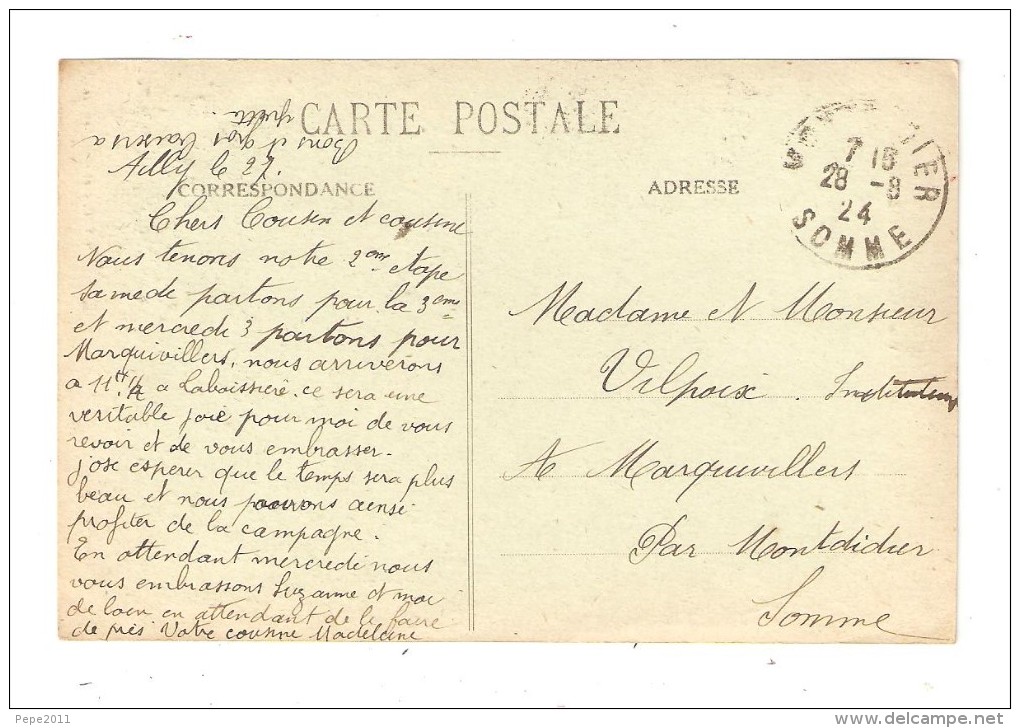 CARTE POSTALE
Bons et gros baisers a
Ailly le 27.
CORRESPONDANCE
ADRESSE
7 15
28 -8
24
SOMME
Chers Cousin et cousine
Nous tenons notre 2eme etape
samedi partons pour la 3eme
et mercredi 3 partons pour
Marquivillers, nous arriverons
a 11H 1/2 a Laboissiere. ce sera une
veritable joie pour moi de vous
revoir et de vous embrasser.
j'ose esperer que le temps sera plus
beau et nous pourrons ainsi
profiter de la campagne.
En attendant mercredi nous
vous embrassons Suzanne et moi
de loin en attendant de le faire
de près Votre cousine Madeleine
Madame et Monsieur
Vilpoix. Instituteur
A Marquivillers
Par Montdidier
Somme
Pepe2011
www.delcampe.net